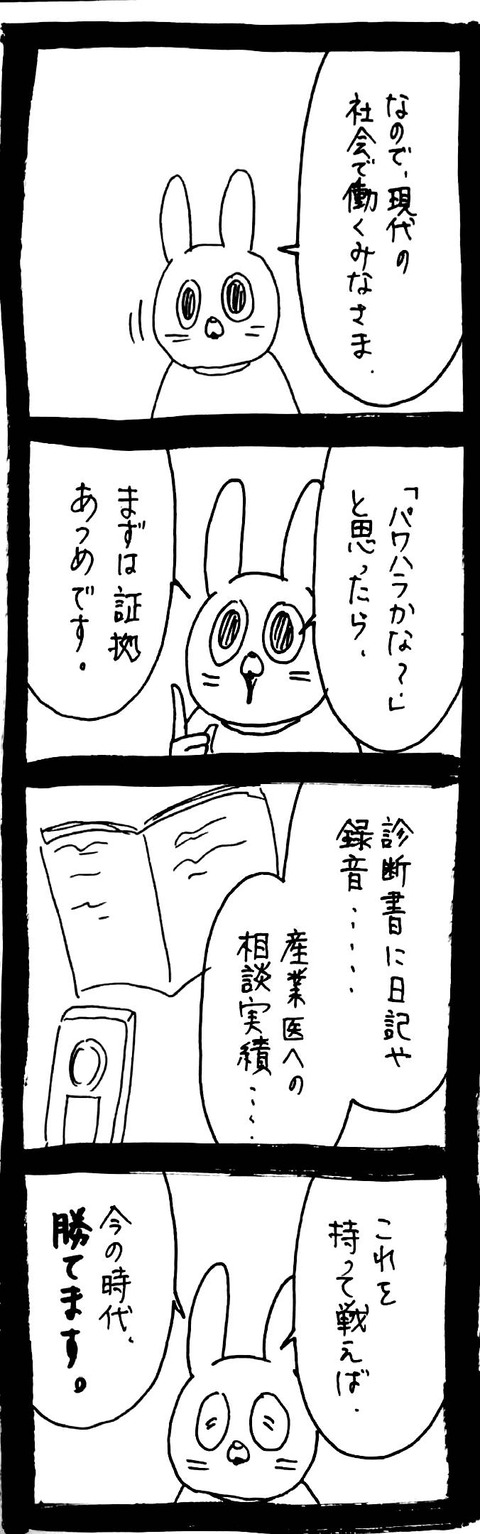 なので、現代の
社会で働くみなさま、
「パワハラかな?」
と思ったら、
まずは証拠
あつめです。
診断書に日記や
録音……
産業医への
相談実績……
これを
持って戦えば、
今の時代、
勝てます。